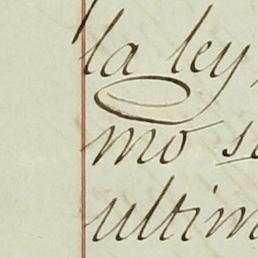 la ley
mo s
ultim